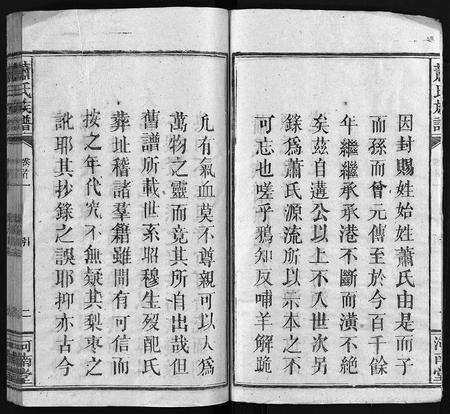 蕭氏族譜
因封賜姓始姓蕭氏由是而子
而孫而曾元傳至於今百千餘
年繼繼承承港不斷而潢不絕
矣茲自遘公以上不入世次另
錄為蕭氏源流所以示本之不
可忘也嗟乎鴉知反哺羊解跪
凡有氣血莫不尊親可以人為
萬物之靈而竟其所自出哉但
舊譜所載世系昭穆生歿配氏
葬址稽諸羣籍雖間有可信而
按之年代究不無疑其梨棗之
訛耶其抄錄之誤耶抑亦古今
蕭氏族譜
卷首
二
河南堂